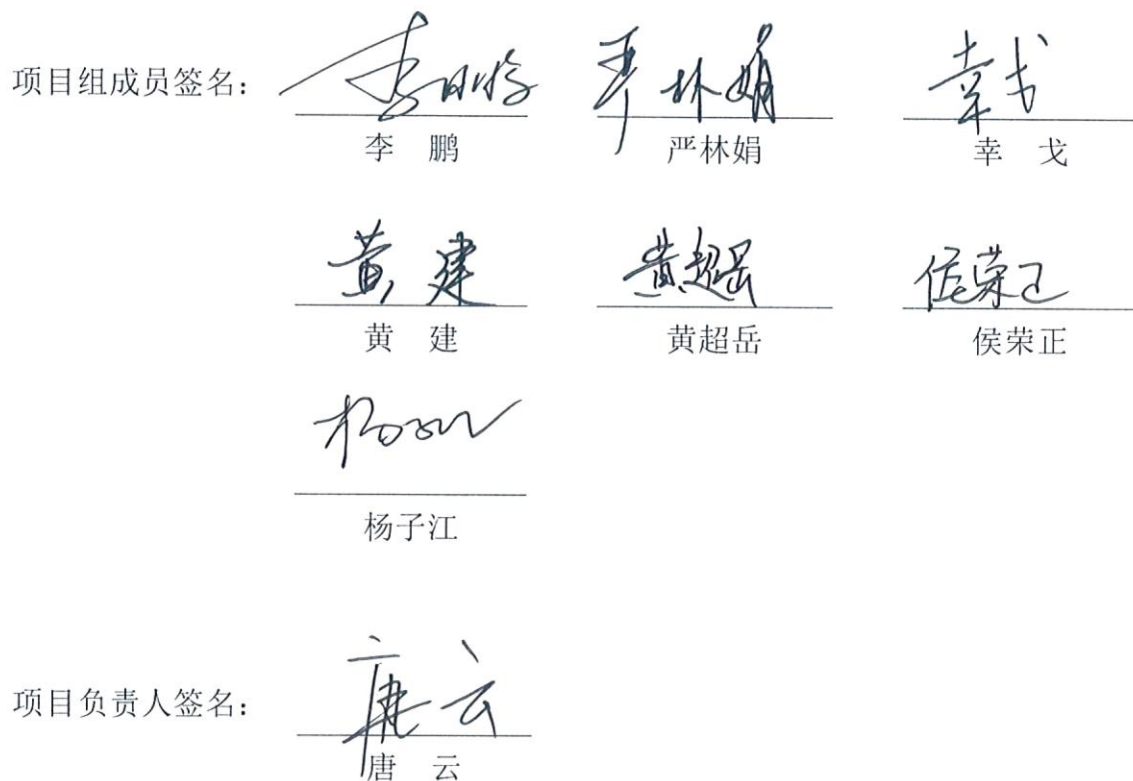 项目组成员签名： 李鹏 严林娟 幸戈
李 鹏 严林娟 幸 戈
黄建 黄超岳 侯荣正
黄 建 黄超岳 侯荣正
杨子江
杨子江
项目负责人签名： 唐云
唐 云